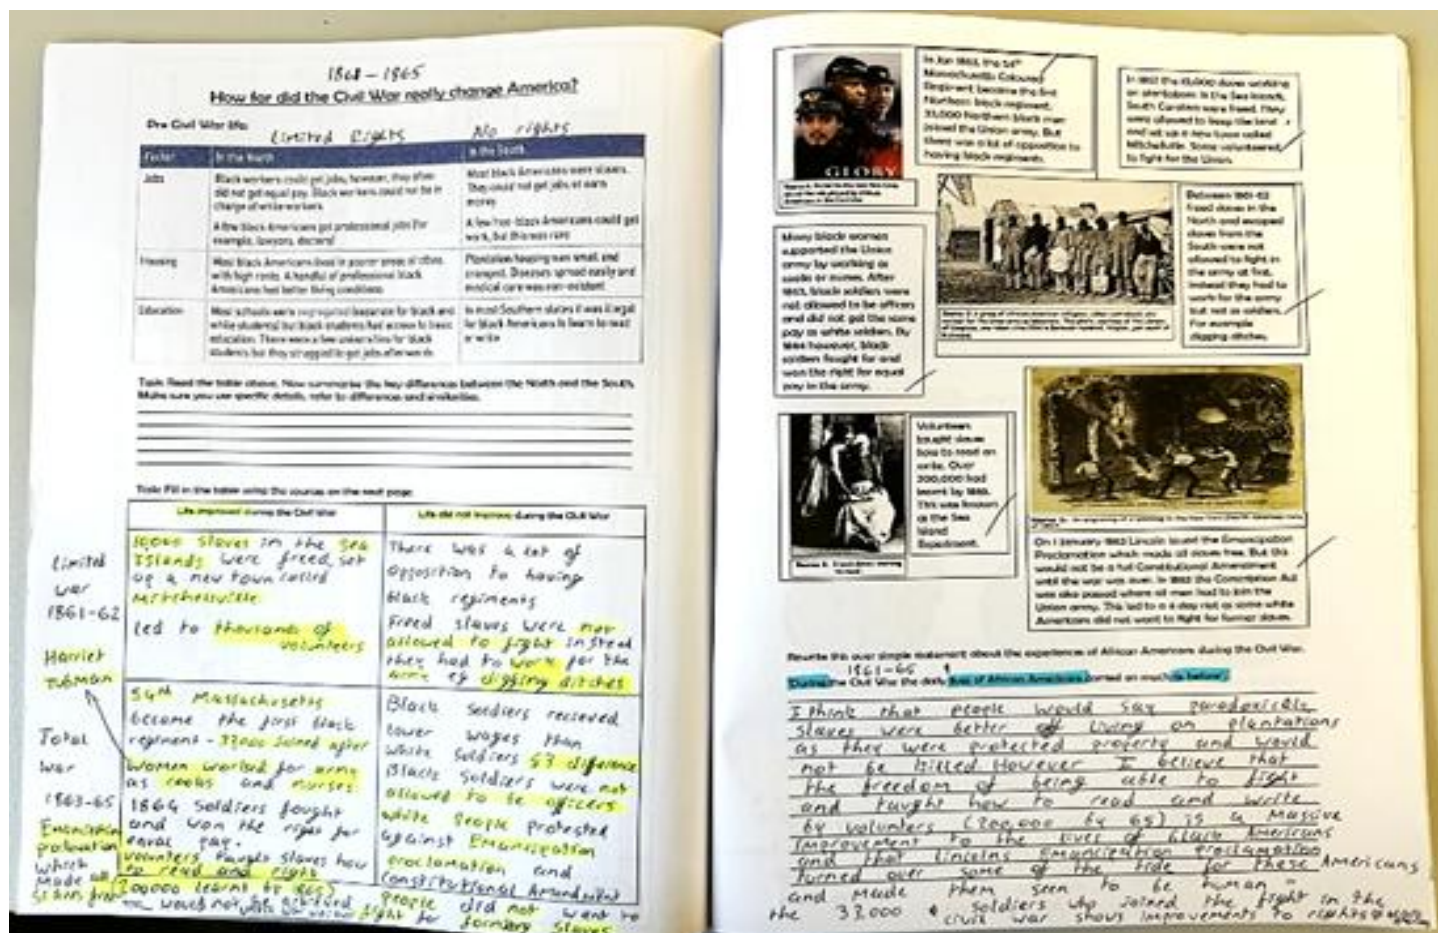 1861-1865
How far did the Civil War really change America?
Pre Civil War life:
Limited Rights
No rights
Factor
In the North
In the South
Jobs
Black workers could get jobs, however, they often
did not get equal pay. Black workers could not be in
charge of white workers.
A few Black Americans got professional jobs (for
example, lawyers, doctors)
Most black Americans were slaves.
They could not get jobs or earn
money
A few free black Americans could get
work, but this was rare
Housing
Most black Americans lived in poorer areas of cities
with high rents. A handful of professional black
Americans had better living conditions.
Plantation housing was small and
cramped. Diseases spread easily and
medical care was non-existent
Education
Most schools were segregated (separate for black and
white students) but black students had access to basic
education. There were a few universities for black
students but they struggled to get jobs afterwards.
In most Southern states it was illegal
for black Americans to learn to read
or write
Task: Read the table above. Now summarise the key differences between the North and the South.
Make sure you use specific details, refer to differences and similarities.
Task: Fill in the table using the sources on the next page
Life improved during the Civil War
Life did not improve during the Civil War
Limited
war
1861-62
Harriet
Tubman
10,000 slaves in the Sea
Islands were freed, set
up a new town called
Mitchellville
Led to thousands of
volunteers
There was a lot of
opposition to having
black regiments
Freed slaves were not
allowed to fight instead
they had to work for the
army eg digging ditches
Total
war
1863-65
Emancipation
proclamation
which
made all
54th Massachusetts
became the first black
regiment - 33000 joined after
Women worked for army
as cooks and nurses
1864 soldiers fought
and won the right for
equal pay.
Volunteers taught slaves how
to read and right
(200000 learnt by 1865)
Black soldiers recieved
lower wages than
white soldiers $3 diference
Black soldiers were not
allowed to be officers
white people protested
against Emancipation
proclamation and
Constitutional Amendment
people did not want to
fight for former slaves
GLORY
In Jan 1863, the 54th
Massachusetts Coloured
Regiment became the first
Northern black regiment.
33,000 Northern black men
joined the Union army. But
there was a lot of opposition to
having black regiments.
In 1862 the 10,000 slaves working
on plantations in the Sea Islands,
South Carolina were freed. They
were allowed to keep the land
and set up a new town called
Mitchellville. Some volunteered
to fight for the Union.
Many black women
supported the Union
army by working as
cooks or nurses. After
1863, black soldiers were
not allowed to be officers
and did not get the same
pay as white soldiers. By
1864 however, black
soldiers fought for and
won the right for equal
pay in the army.
Between 1861-62
freed slaves in the
North and escaped
slaves from the
South were not
allowed to fight in
the army at first,
instead they had to
work for the army
but not as soldiers.
For example
digging ditches.
Volunteers
taught slaves
how to read an
write. Over
200,000 had
learnt by 1865.
This was known
as the Sea
Island
Experiment.
On 1 January 1863 Lincoln issued the Emancipation
Proclamation which made all slaves free. But this
would not be a full Constitutional Amendment
until the war was over. In 1863 the Conscription Act
was also passed where all men had to join the
Union army. This led to a 4 day riot as some white
Americans did not want to fight for former slaves.
Rewrite this over simple statement about the experiences of African Americans during the Civil War.
1861-65
During the Civil War the daily lives of African Americans carried on much as before.
I think that people would say paradoxically
slaves were better off living on plantations
as they were protected property and would
not be killed. However I believe that
the freedom of being able to fight
and taught how to read and write
by volunters (200,000 by 65) is a massive
improvement to the lives of black Americans
and that Lincolns Emancipation proclamation
turned over some of the tide for these Americans
and made them seen to be human
the 33,000 soldiers who joined the fight in the
civil war shows improvements to rights